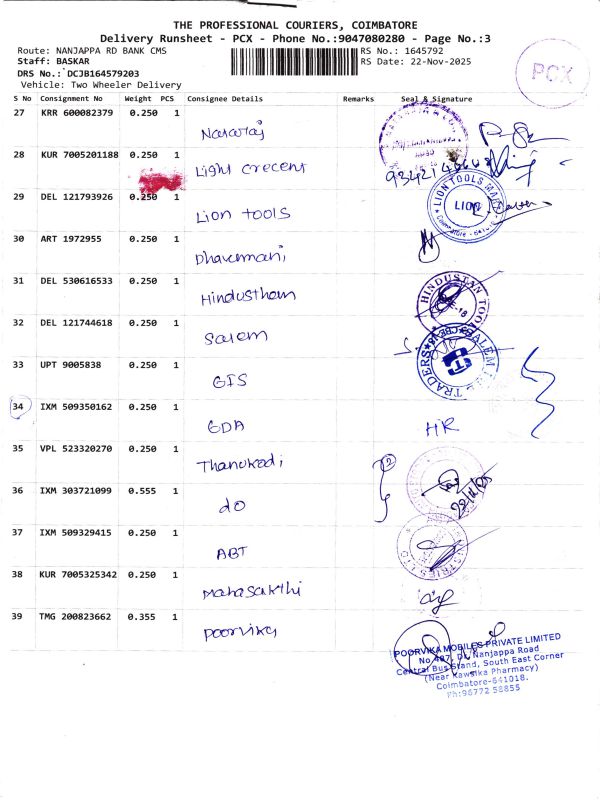 THE PROFESSIONAL COURIERS, COIMBATORE
Delivery Runsheet - PCX - Phone No.:9047080280 - Page No.:3
Route: NANJAPPA RD BANK CMS
RS No.: 1645792
Staff: BASKAR
RS Date: 22-Nov-2025
DRS No.: DCJB164579203
Vehicle: Two Wheeler Delivery
PCX
S No Consignment No Weight PCS Consignee Details Remarks Seal & Signature
27 KRR 600082379 0.250 1 Nataraj
28 KUR 7005201188 0.250 1 Light crecent
29 DEL 121793926 0.250 1 Lion tools
LION TOOLS
LION
30 ART 1972955 0.250 1 Dhavamani
31 DEL 530616533 0.250 1 Hindusthan
HINDUSTAN TOO
32 DEL 121744618 0.250 1 Salem
SALEM
TRADERS
ST
33 UPT 9005838 0.250 1 GIS
34 IXM 509350162 0.250 1 GDA HR
35 VPL 523320270 0.250 1 Thanukodi 2
36 IXM 303721099 0.555 1 do 22/11/25
37 IXM 509329415 0.250 1 ABT
38 KUR 7005325342 0.250 1 Mahasakthi
39 TMG 200823662 0.355 1 Poorvika
POORVIKA MOBILES PRIVATE LIMITED
Nanjappa Road
Central Bus Stand, South East Corner
(Near Kawsika Pharmacy)
Coimbatore-641018.
Ph:96772 58855